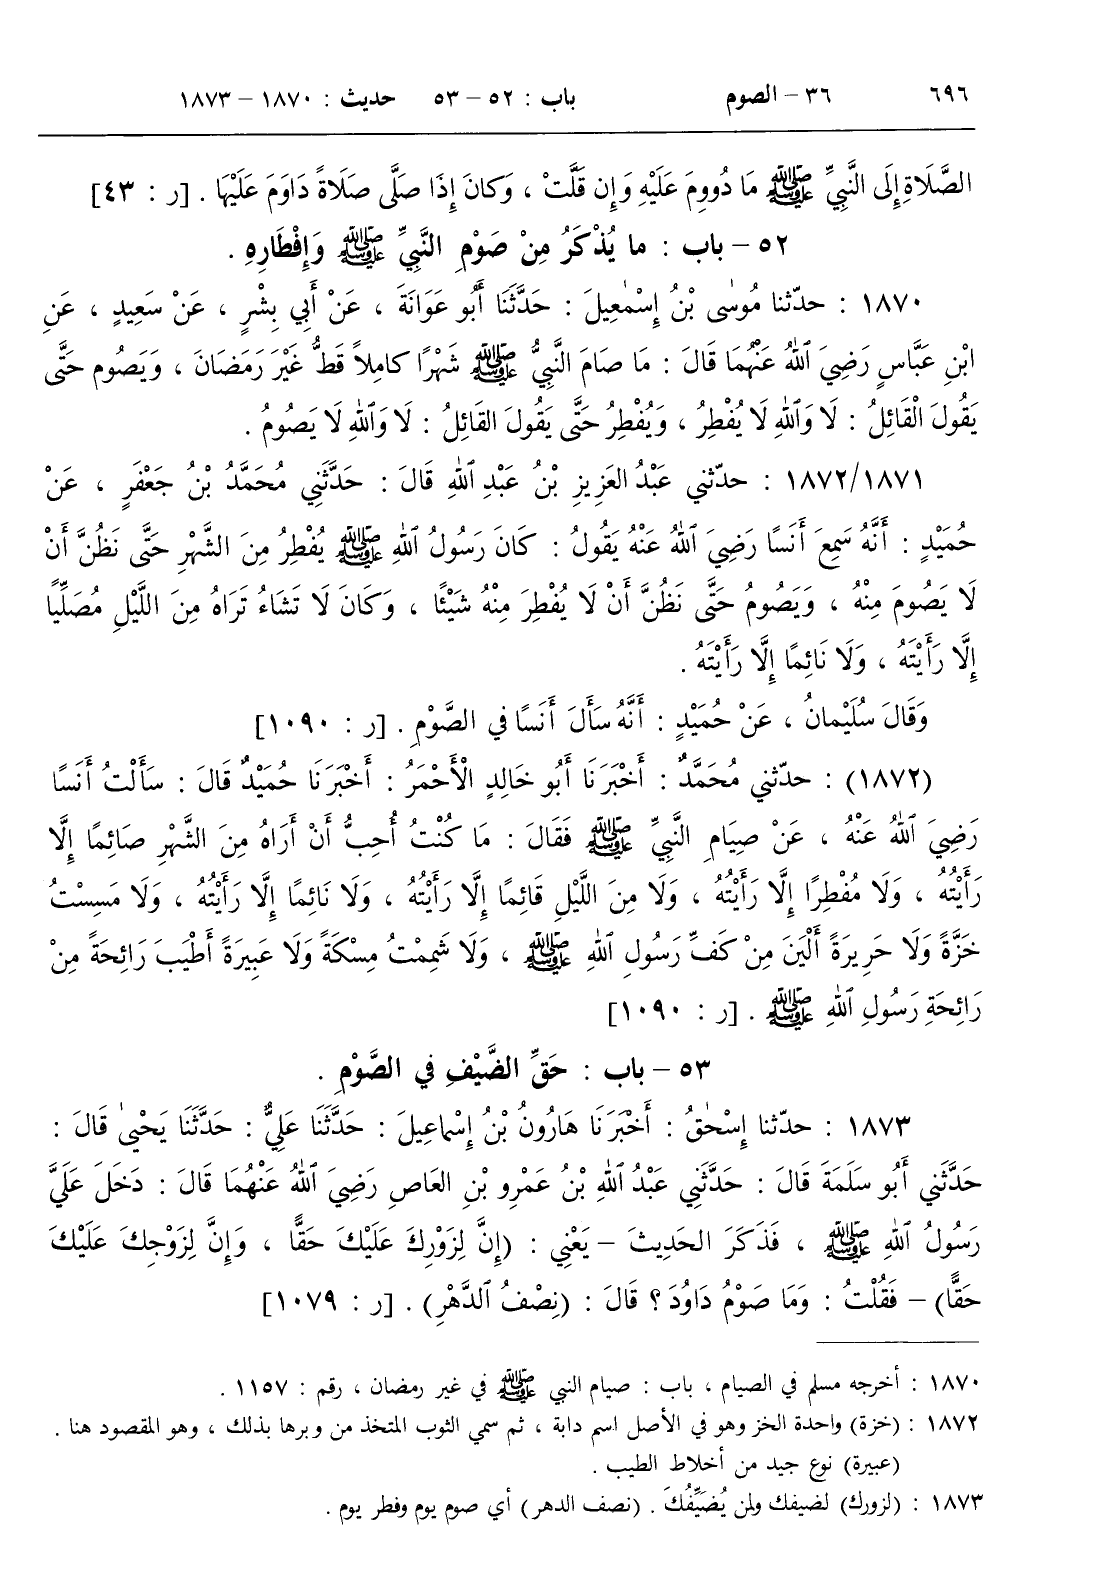 ٦٩٦ ٣٦ – الصوم باب : ٥٢ – ٥٣ حديث : ١٨٧٠ – ١٨٧٣
الصَّلَاةِ إِلَى النَّبِيِّ ﷺ مَا دُووِمَ عَلَيْهِ وَإِن قَلَّتْ ، وَكانَ إِذَا صَلَّى صَلَاةً دَاوَمَ عَلَيْهَا . [ر : ٤٣]
٥٢ – باب : ما يُذْكَرُ مِنْ صَوْمِ النَّبِيِّ ﷺ وَإِفْطَارِهِ .
١٨٧٠ : حدّثنا مُوسٰى بْنُ إِسْمٰعِيلَ : حَدَّثَنَا أَبُو عَوَانَةَ ، عَنْ أَبِي بِشْرٍ ، عَنْ سَعِيدٍ ، عَنِ
ابْنِ عَبَّاسٍ رَضِيَ ٱللهُ عَنْهُمَا قَالَ : مَا صَامَ النَّبِيُّ ﷺ شَهْرًا كامِلاً قَطُّ غَيْرَ رَمَضَانَ ، وَيَصُوم حَتَّى
يَقُولَ الْقَائِلُ : لَا وَٱللهِ لَا يُفْطِرُ ، وَيُفْطِرُ حَتَّى يَقُولَ القَائِلُ : لَا وَٱللهِ لَا يَصُومُ .
١٨٧٢/١٨٧١ : حدّثني عَبْدُ العَزِيزِ بْنُ عَبْدِ ٱللهِ قَالَ : حَدَّثَنِي مُحَمَّدُ بْنُ جَعْفَرٍ ، عَنْ
حُمَيْدٍ : أَنَّهُ سَمِعَ أَنَسًا رَضِيَ ٱللهُ عَنْهُ يَقُولُ : كَانَ رَسُولُ ٱللهِ ﷺ يُفْطِرُ مِنَ الشَّهْرِ حَتَّى نَظُنَّ أَنْ
لَا يَصُومَ مِنْهُ ، وَيَصُومُ حَتَّى نَظُنَّ أَنْ لَا يُفْطِرَ مِنْهُ شَيْئًا ، وَكَانَ لَا تَشَاءُ تَرَاهُ مِنَ اللَّيْلِ مُصَلِّيًا
إِلَّا رَأَيْتَهُ ، وَلَا نَائِمًا إِلَّا رَأَيْتَهُ .
وَقَالَ سُلَيْمانُ ، عَنْ حُمَيْدٍ : أَنَّهُ سَأَلَ أَنَسًا في الصَّوْمِ . [ر : ١٠٩٠]
(١٨٧٢) : حدّثني مُحَمَّدٌ : أَخْبَرَنَا أَبُو خَالِدٍ الْأَحْمَرُ : أَخْبَرَنَا حُمَيْدٌ قَالَ : سَأَلْتُ أَنَسًا
رَضِيَ ٱللهُ عَنْهُ ، عَنْ صِيَامِ النَّبِيِّ ﷺ فَقَالَ : مَا كُنْتُ أُحِبُّ أَنْ أَرَاهُ مِنَ الشَّهْرِ صَائِمًا إِلَّا
رَأَيْتُهُ ، وَلَا مُفْطِرًا إِلَّا رَأَيْتُهُ ، وَلَا مِنَ اللَّيْلِ قَائِمًا إِلَّا رَأَيْتُهُ ، وَلَا نَائِمًا إِلَّا رَأَيْتُهُ ، وَلَا مَسِسْتُ
خَزَّةً وَلَا حَرِيرَةً أَلْيَنَ مِنْ كَفِّ رَسُولِ ٱللهِ ﷺ ، وَلَا شَمِمْتُ مِسْكَةً وَلَا عَبِيرَةً أَطْيَبَ رَائِحَةً مِنْ
رَائِحَةِ رَسُولِ ٱللهِ ﷺ . [ر : ١٠٩٠]
٥٣ – باب : حَقِّ الضَّيْفِ في الصَّوْمِ .
١٨٧٣ : حدّثنا إِسْحٰقُ : أَخْبَرَنَا هَارُونُ بْنُ إِسْماعِيلَ : حَدَّثَنَا عَلِيٌّ : حَدَّثَنَا يَحْيٰى قَالَ :
حَدَّثَنِي أَبُو سَلَمَةَ قَالَ : حَدَّثَنِي عَبْدُ ٱللهِ بْنُ عَمْرِو بْنِ العَاصِ رَضِيَ ٱللهُ عَنْهُمَا قَالَ : دَخَلَ عَلَيَّ
رَسُولُ ٱللهِ ﷺ ، فَذَكَرَ الحَدِيثَ – يَعْنِي : (إِنَّ لِزَوْرِكَ عَلَيْكَ حَقًّا ، وَإِنَّ لِزَوْجِكَ عَلَيْكَ
حَقًّا) – فَقُلْتُ : وَمَا صَوْمُ دَاوُدَ ؟ قَالَ : (نِصْفُ ٱلدَّهْرِ) . [ر : ١٠٧٩]
١٨٧٠ : أخرجه مسلم في الصيام ، باب : صيام النبي ﷺ في غير رمضان ، رقم : ١١٥٧ .
١٨٧٢ : (خزة) واحدة الخز وهو في الأصل اسم دابة ، ثم سمي الثوب المتخذ من وبرها بذلك ، وهو المقصود هنا .
(عبيرة) نوع جيد من أخلاط الطيب .
١٨٧٣ : (لزورك) لضيفك ولمن يُضَيِّفُكَ . (نصف الدهر) أي صوم يوم وفطر يوم .